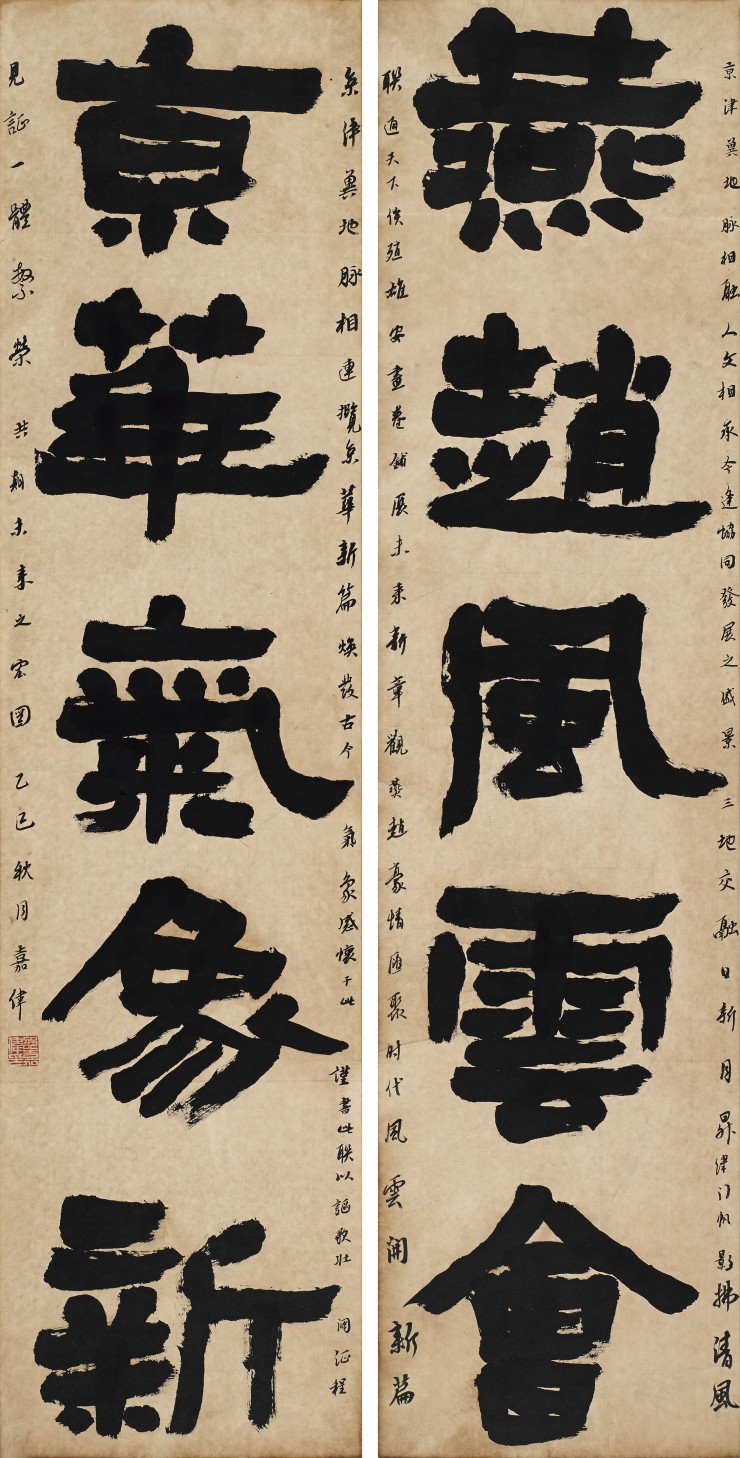 京津冀地脉相融人文相承今逢協同發展之盛景三地交融日新月昇津门帆影拂清風
燕趙風雲會
联通天下雄安畫卷鋪展未来新章觀燕趙豪情匯聚时代風雲開新篇
京津冀地脉相連攬京華新篇煥發古今氣象感懷于此謹書此联以謳歌壮阔征程
京華氣象新
見証一體繁榮共期未来之宏图乙巳秋月嘉偉